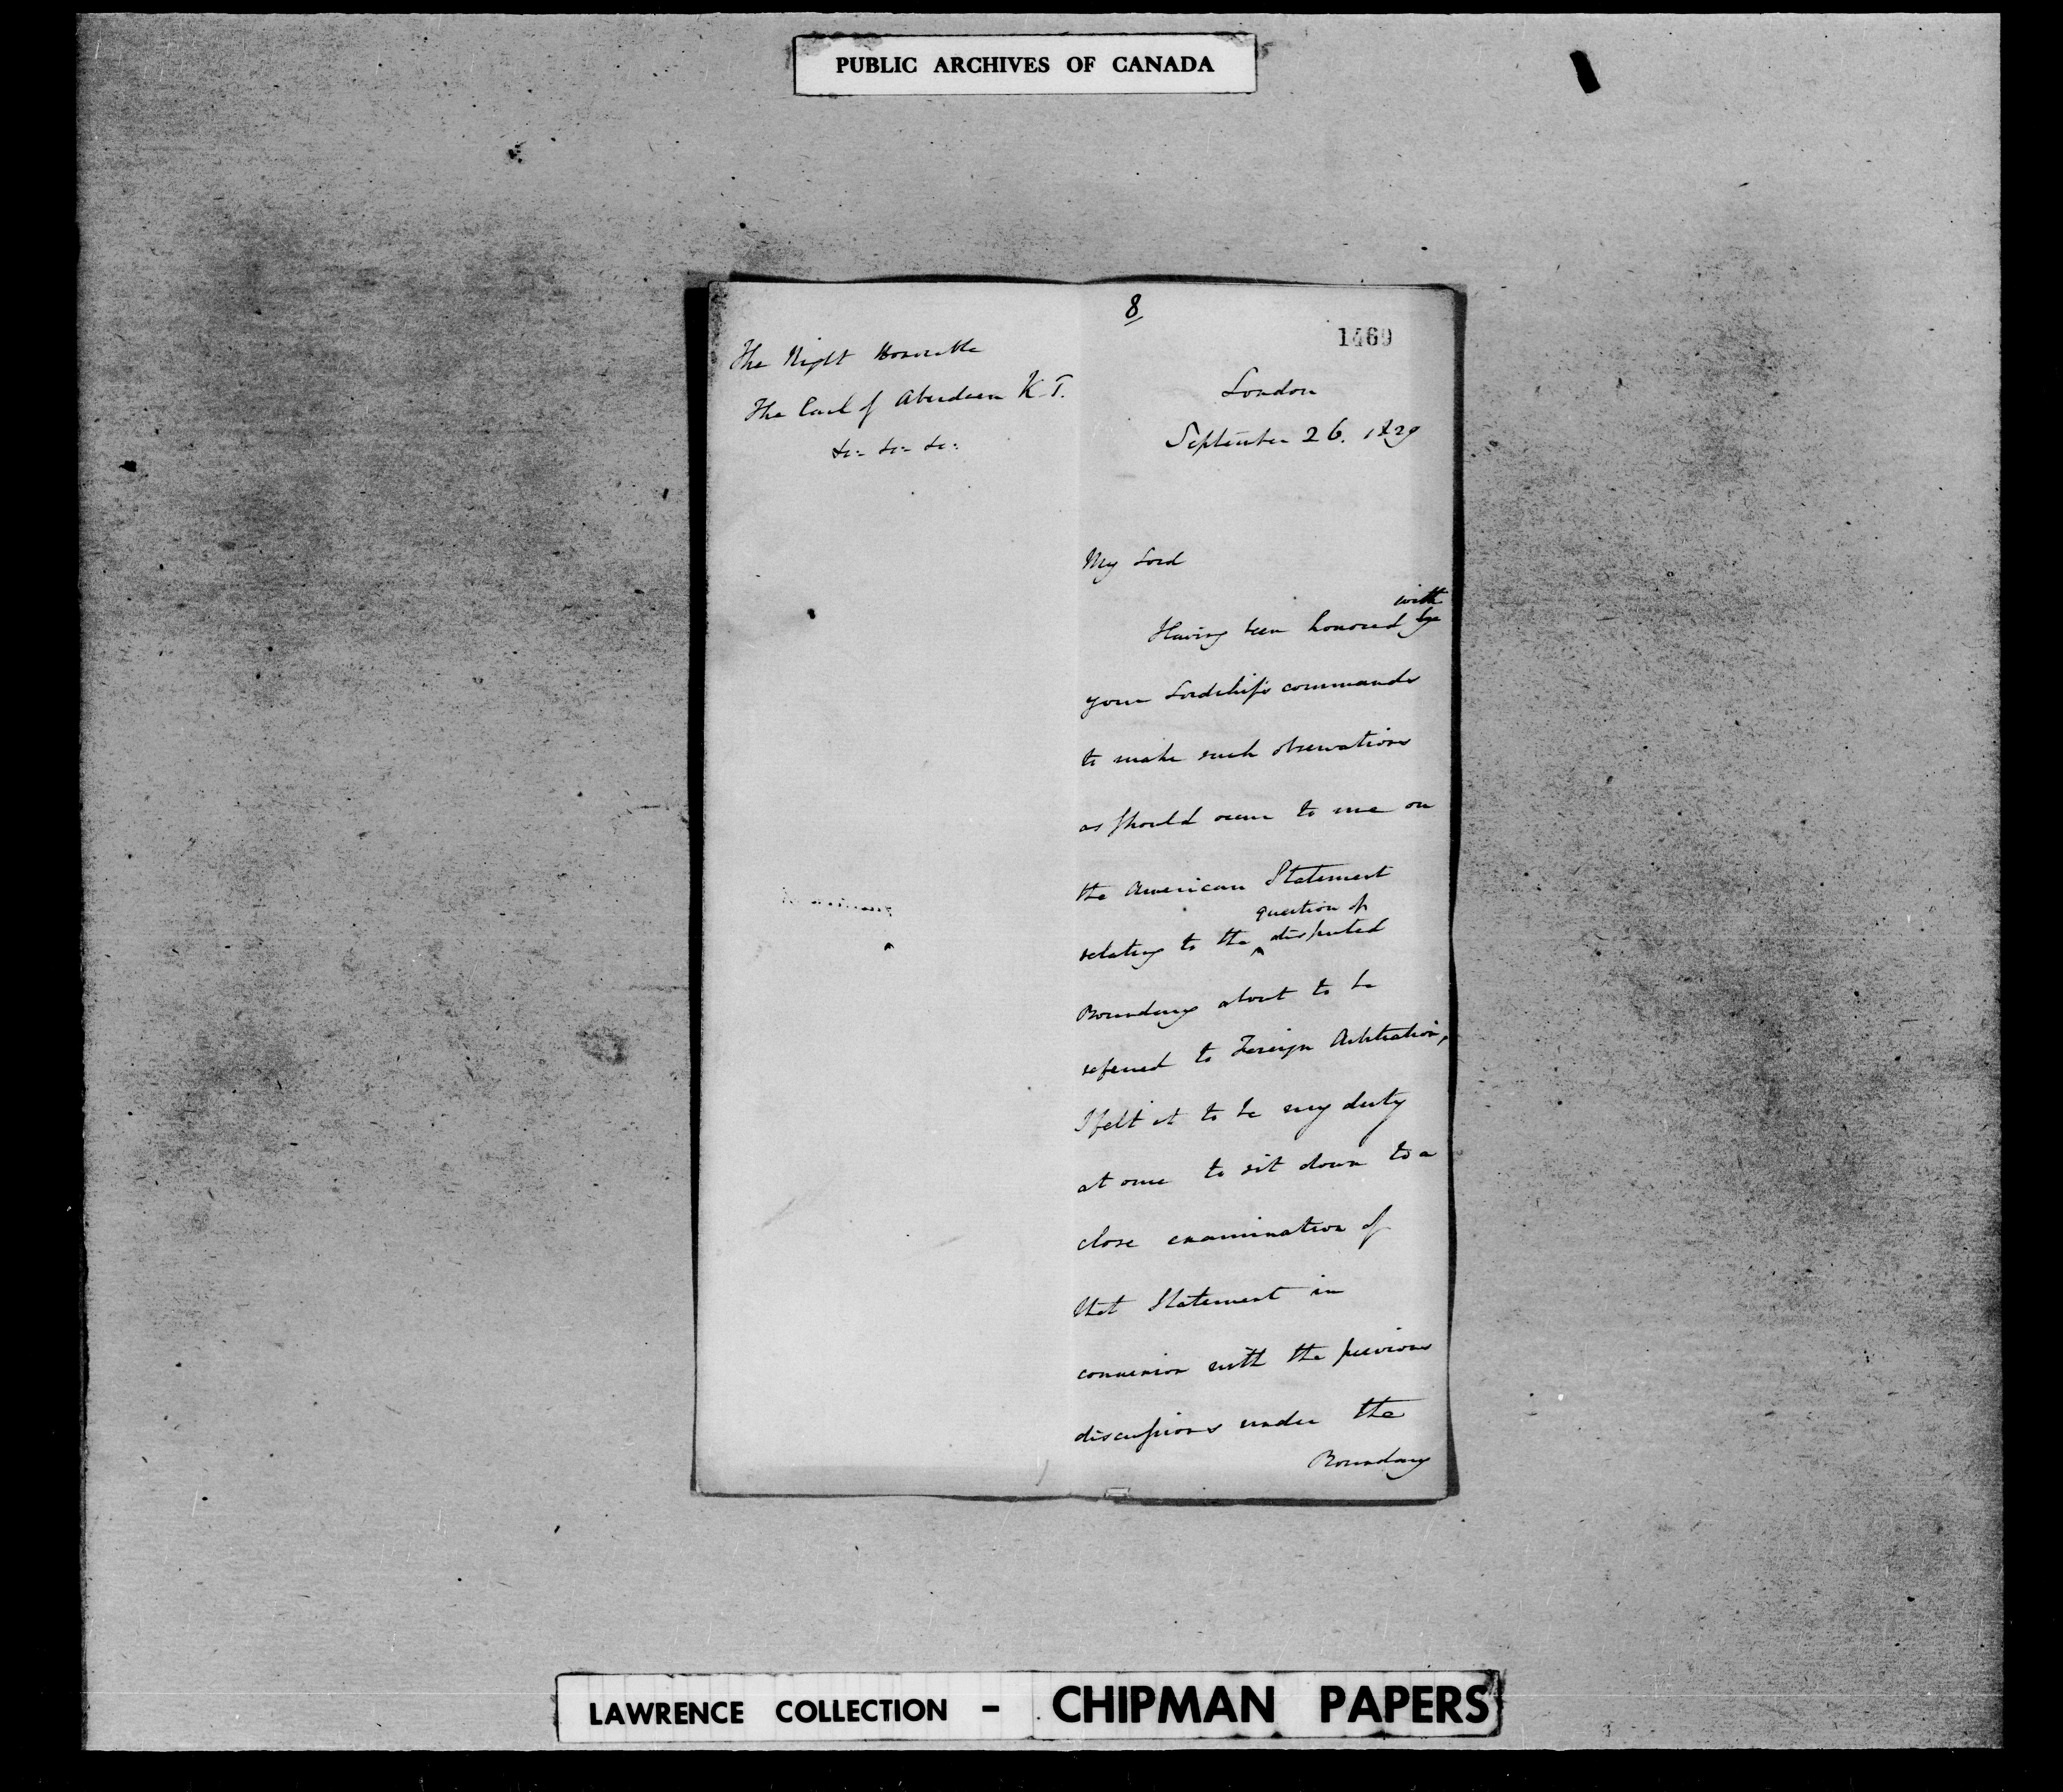 PUBLIC ARCHIVES OF CANADA
8
1460
The Right Honorable
The Earl of Aberdeen K.T.
&c- &c- &c-
London
September 26. 1829
My Lord
with
Having been honored by
your Lordship's commands
to make such observations
as should occur to me on
the American Statement
question of
relating to the ^ disputed
Boundary about to be
referred to Foreign Arbitration,
I felt it to be my duty
at once to sit down to a
close examination of
that Statement in
connexion with the previous
discussions under the
Boundary
LAWRENCE COLLECTION - CHIPMAN PAPERS